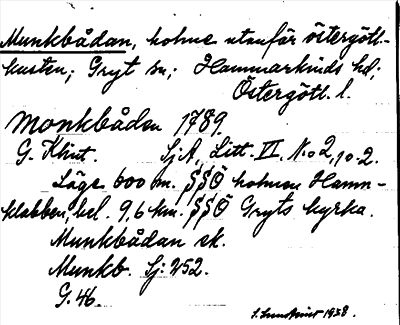 Munkbådan, holme utanför östergötl.-
kusten; Gryt sn; Hammarkinds hd;
Östergötl. l.
Monkbåden 1789.
G. Klint. Sj. A, Litt. VI, No 2, 10. 2.
Läge 600 m. SSÖ holmen Hamn-
klabben, bel. 9,6 km. SSÖ Gryts kyrka.
Munkbådan ek.
Munkb. Sj: 252.
G. 46.
1938.